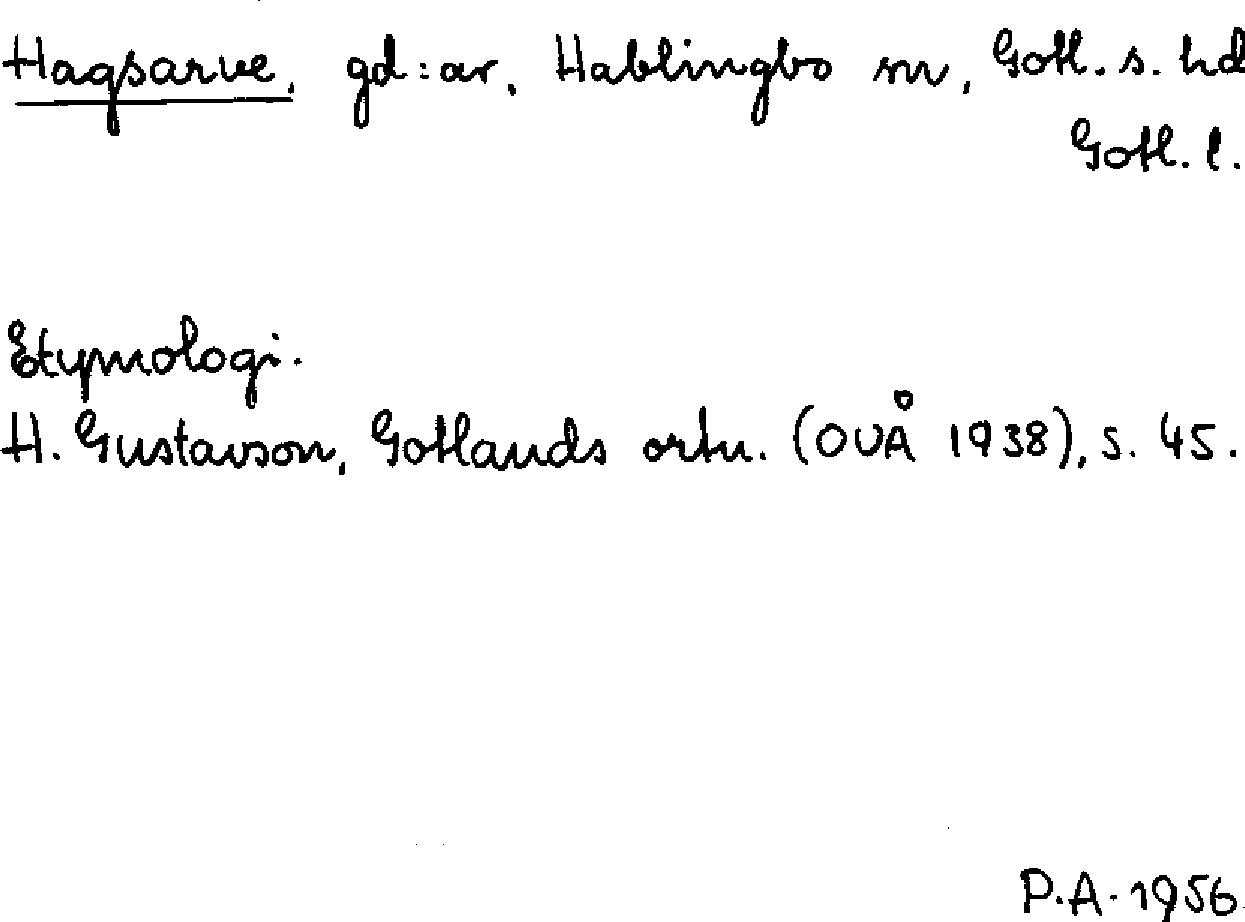 Hagsarve, gd:ar, Hablingbo sn, Gotl. s. hd
Gotl. l.
Etymologi.
H. Gustavson, Gotlands ortn. (OUÅ 1938), s. 45.
P.A. 1956